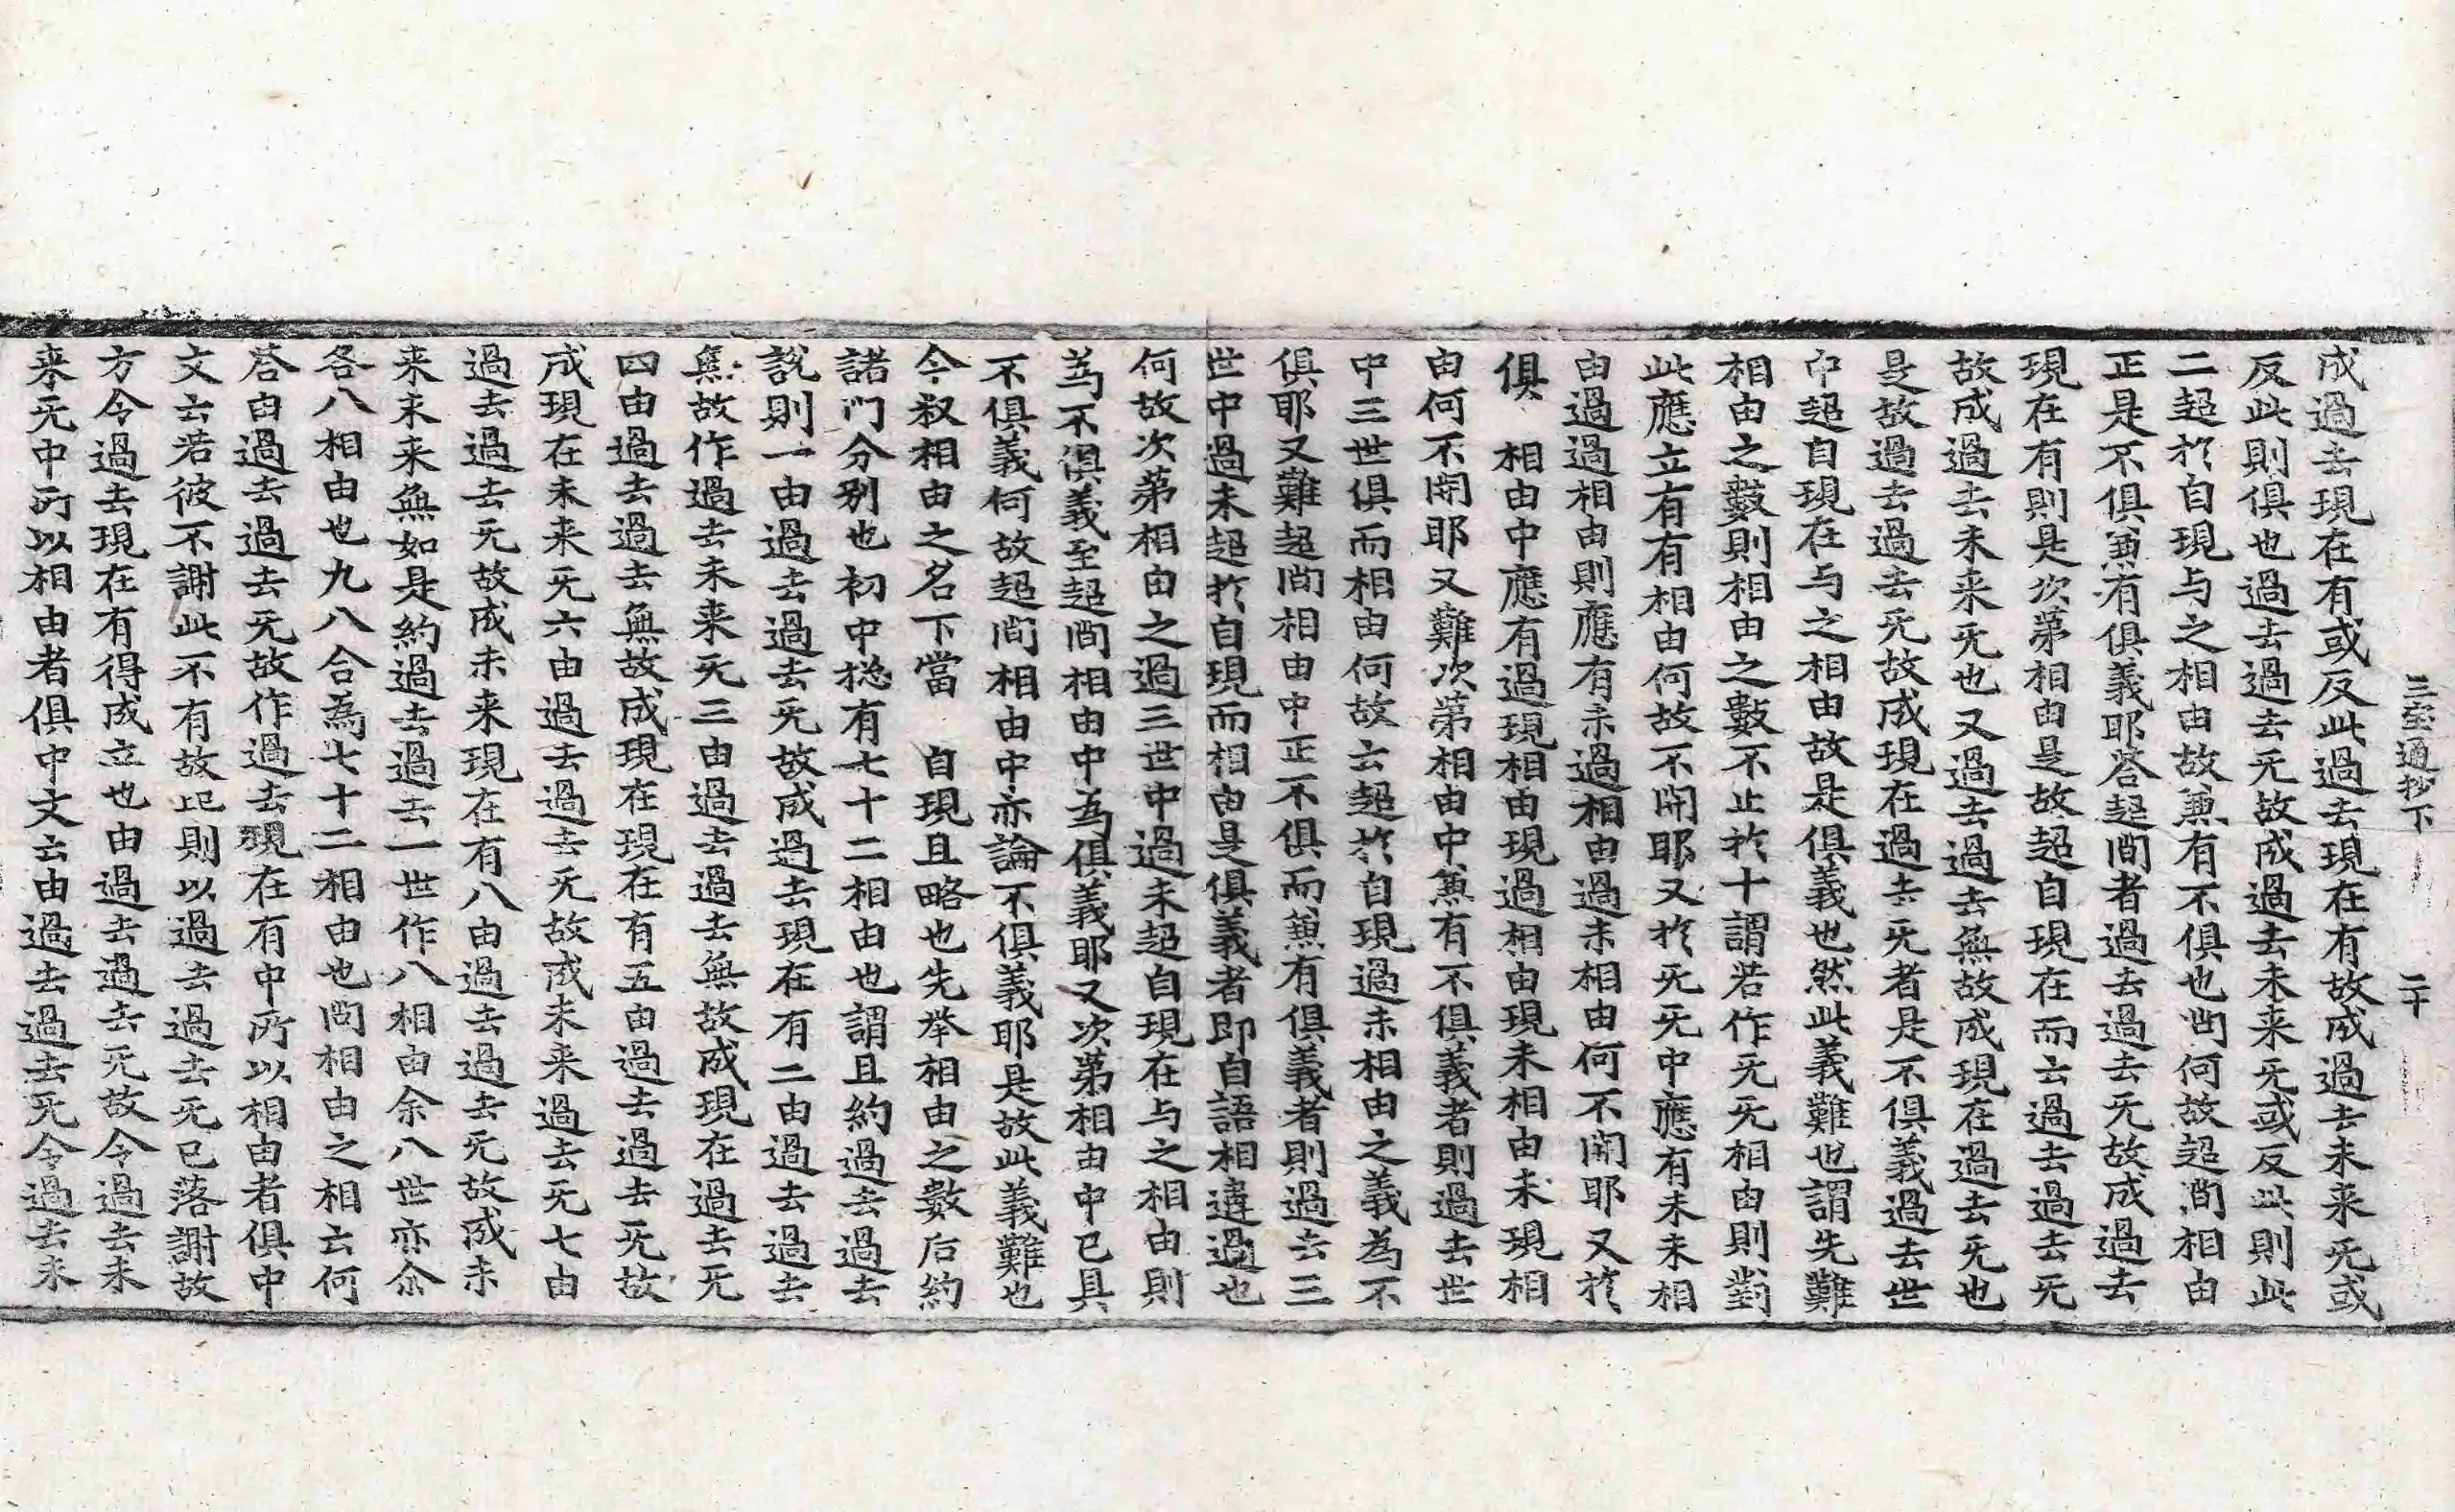 三宝通抄下　二十
成過去現在有或反此過去現在有故成過去未来旡或
反此則俱也過去過去旡故成過去未来旡或反此則此
二超於自現与之相由故兼有不俱也問何故超間相由
正是不俱兼有俱義耶答超間者過去過去旡故成過去
現在有則是次第相由是故超自現在而云過去過去旡
故成過去未来旡也又過去過去無故成現在過去旡也
是故過去過去旡故成現在過去旡者是不俱義過去世
中超自現在与之相由故是俱義也然此義難也謂先難
相由之數則相由之數不止於十謂若作旡旡相由則對
此應立有有相由何故不開耶又於旡旡中應有未未相
由過過相由則應有未過相由過未相由何不開耶又於
俱　相由中應有過現相由現過相由現未相由未現相
由何不開耶又難次第相由中兼有不俱義者則過去世
中三世俱而相由何故云超於自現過未相由之義為不
俱耶又難超間相由中正不俱而兼有俱義者則過去三
世中過未超於自現而相由是俱義者即自語相違過也
何故次第相由之過三世中過未超自現在与之相由則
為不俱義至超間相由中為俱義耶又次第相由中已具
不俱義何故超間相由中亦論不俱義耶是故此義難也
今叙相由之名下當　自現且略也先举相由之數后約
諸門分别也初中捴有七十二相由也謂且約過去過去
說則一由過去過去旡故成過去現在有二由過去過去
無故作過去未来旡三由過去過去無故成現在過去旡
四由過去過去無故成現在現在有五由過去過去旡故
成現在未来旡六由過去過去旡故成未来過去旡七由
過去過去旡故成未来現在有八由過去過去旡故成未
来未来無如是約過去過去一世作八相由余八世亦尒
各八相由也九八合為七十二相由也問相由之相云何
答由過去過去旡故作過去現在有中所以相由者俱中
文云若彼不謝此不有故此則以過去過去旡已落謝故
方令過去現在有得成立也由過去過去旡故令過去未
来旡中所以相由者俱中文云由過去過去旡令過去未